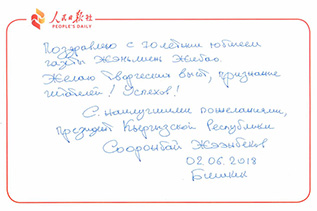 人民日报社
PEOPLE'S DAILY
Поздравляю с 70 летним юбилеем
газеты Жэньминь Жибао.
Желаю творческих высот, признание
читателей! Успехов!
С наилучшими пожеланиями,
президент Кыргызской Республики
Сооронбай Жээнбеков
02.06.2018
Бишкек